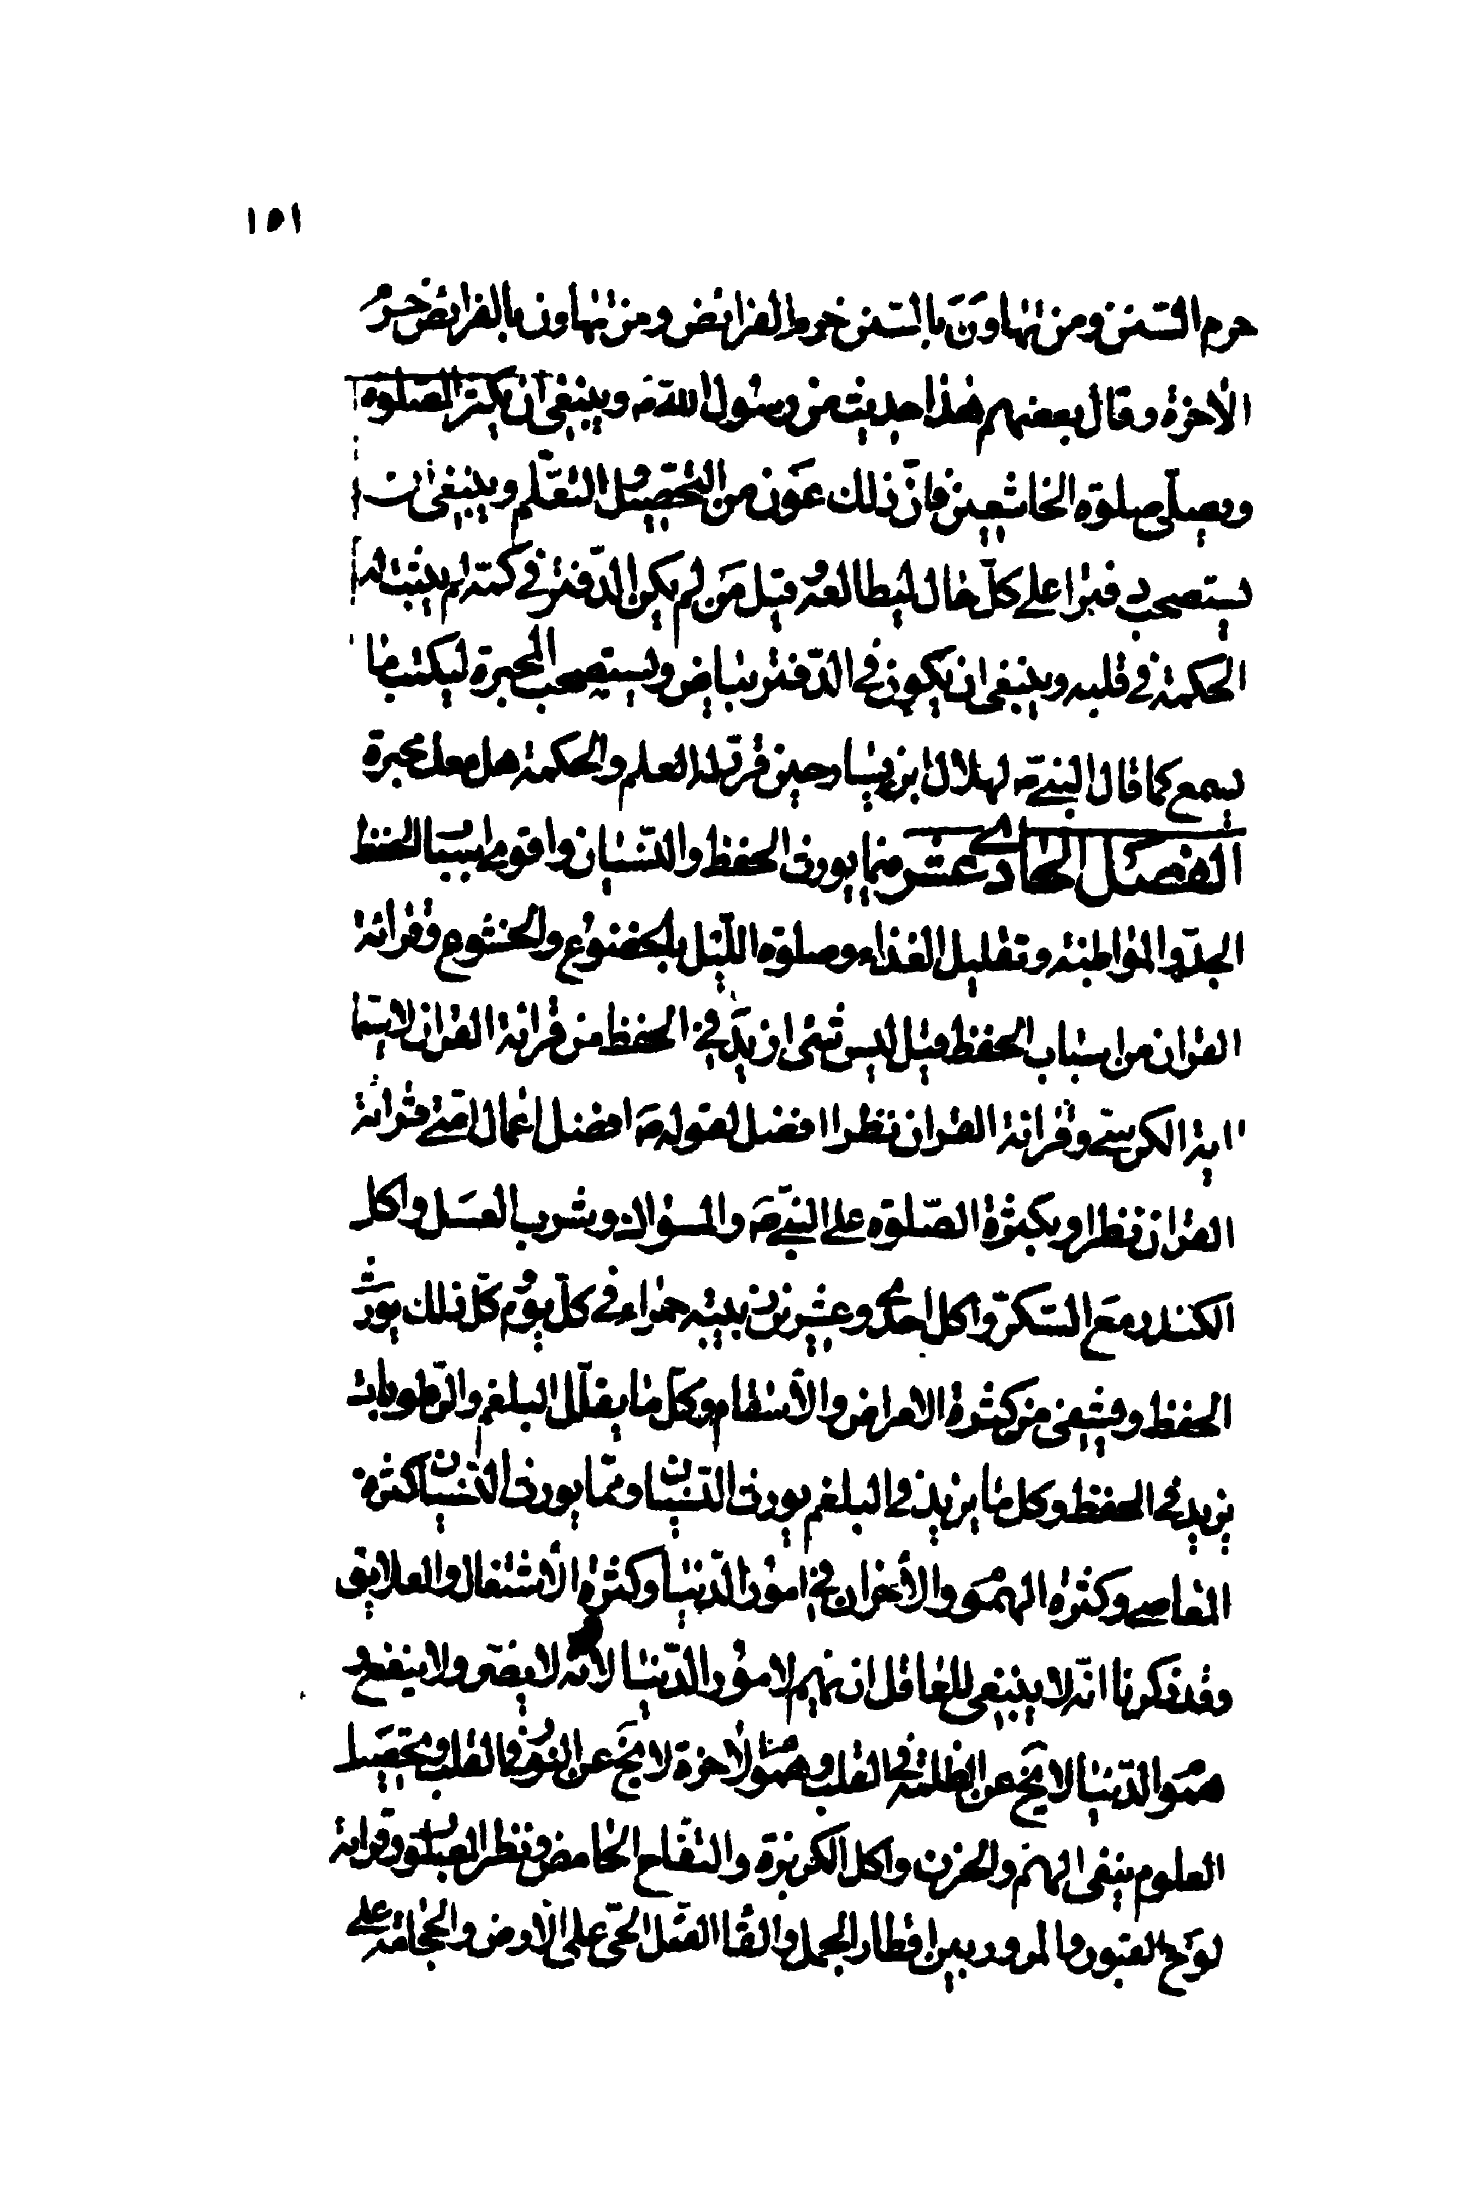 ١٥١
حرم السّنن ومن تهاون بالسّنن حرم الفرائض ومن تهاون بالفرائض حرم
الاخرة وقال بعضهم هذا حديث من رسول الله ص وينبغى ان يكثر الصّلوة
ويصلّى صلوة الخاشعين فانّ ذلك عون من التّحصيل والتعلّم وينبغى ان
يستصحب دفترا على كلّ حال ليطالعه وقيل من لم يكن الدّفتر فى كمّه لم يثبت له
الحكمة فى قلبه وينبغى ان يكون فى الدّفتر بياض ويستصحب المحبرة ليكتب ما
يسمع كما قال النبىّ ص لهلال ابن يسار حين قرّر له العلم والحكمة هل معك محبرة
الفصل الحادى عشر فيما يورث الحفظ والنّسيان واقوى اسباب الحفظ
الجدّ والمواظبة وتقليل الغذاء وصلوة اللّيل بالخضوع والخشوع وقرائة
القران من اسباب الحفظ قيل ليس شىء ازيد فى الحفظ من قرائة القران لاسيّما
اية الكرسىّ وقرائة القران نظرا افضل لقوله ص افضل اعمال امّتى قرائة
القران نظرا وبكثرة الصّلوة على النّبىّ ص والمسواك وشرب العسل واكل
الكندر مع السّكر واكل احدى وعشرين زبيبه حمراء فى كلّ يوم كلّ ذلك يورث
الحفظ ويشفى من كثرة الامراض والاسقام وكلّ ما يقلّل البلغم والرّطوبات
يزيد فى الحفظ وكل ما يزيد فى البلغم يورث النّسيان وممّا يورث النّسيان كثرة
المعاصى وكثرة الهموم والاحزان فى امور الدّنيا وكثرة الاشتغال والعلايق
وقد ذكرنا انّه لا ينبغى للعاقل ان يهم لامور الدّنيا لانّه لا يضرّ ولا ينفع و
هموم الدّنيا لا يخ عن الظلمة فى القلب وهموم الاخرة لا يخ عن النور فى القلب وتحصيل
العلوم ينفى الهم والحزن واكل الكزبرة والتفّاح الحامض ونظر المصلوب وقرائة
لوح القبور والمرور بين اقطار الجمل والقاء القمّل الحىّ على الارض والحجامة على